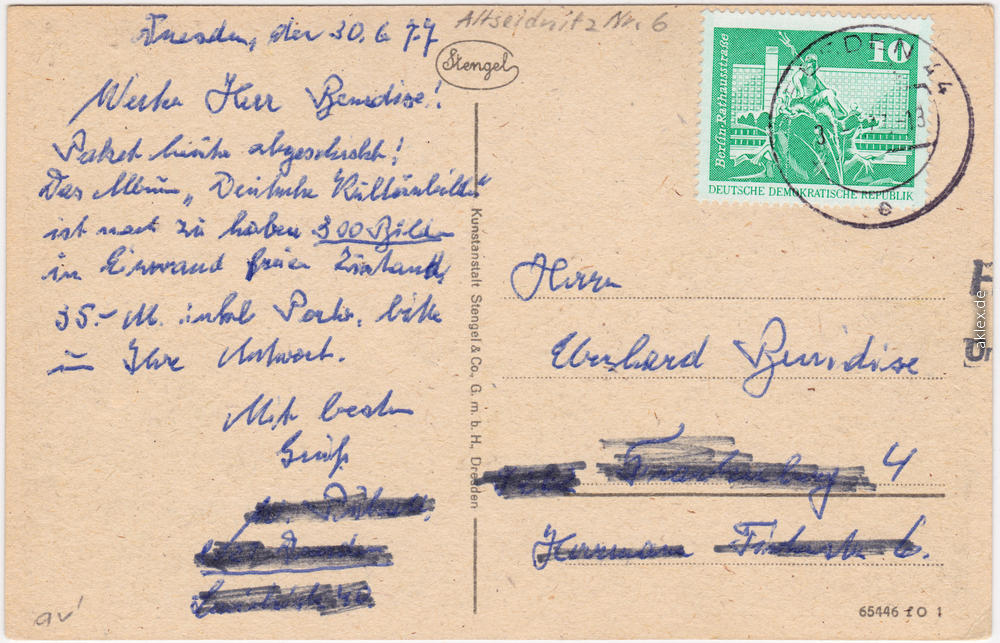 Dresden, der 30.6.77
Altseidnitz Nr. 6
Stengel
Werter Herr Benedise!
Paket heute abgeschickt!
Das Album „Deutsche Kulturbilder"
ist noch zu haben 300 Bilder
in Einwand freien Zustand,
35.- M. inkl Porto, bitte
um Ihre Antwort.
Mit besten
Gruß
Kunstanstalt Stengel & Co., G. m. b. H., Dresden
10
Berlin-Rathausstraße
DEUTSCHE DEMOKRATISCHE REPUBLIK
DRESDEN 44
Herrn
Eberhard Benedise
4
6.
65446 f O 1
av
aklex.de